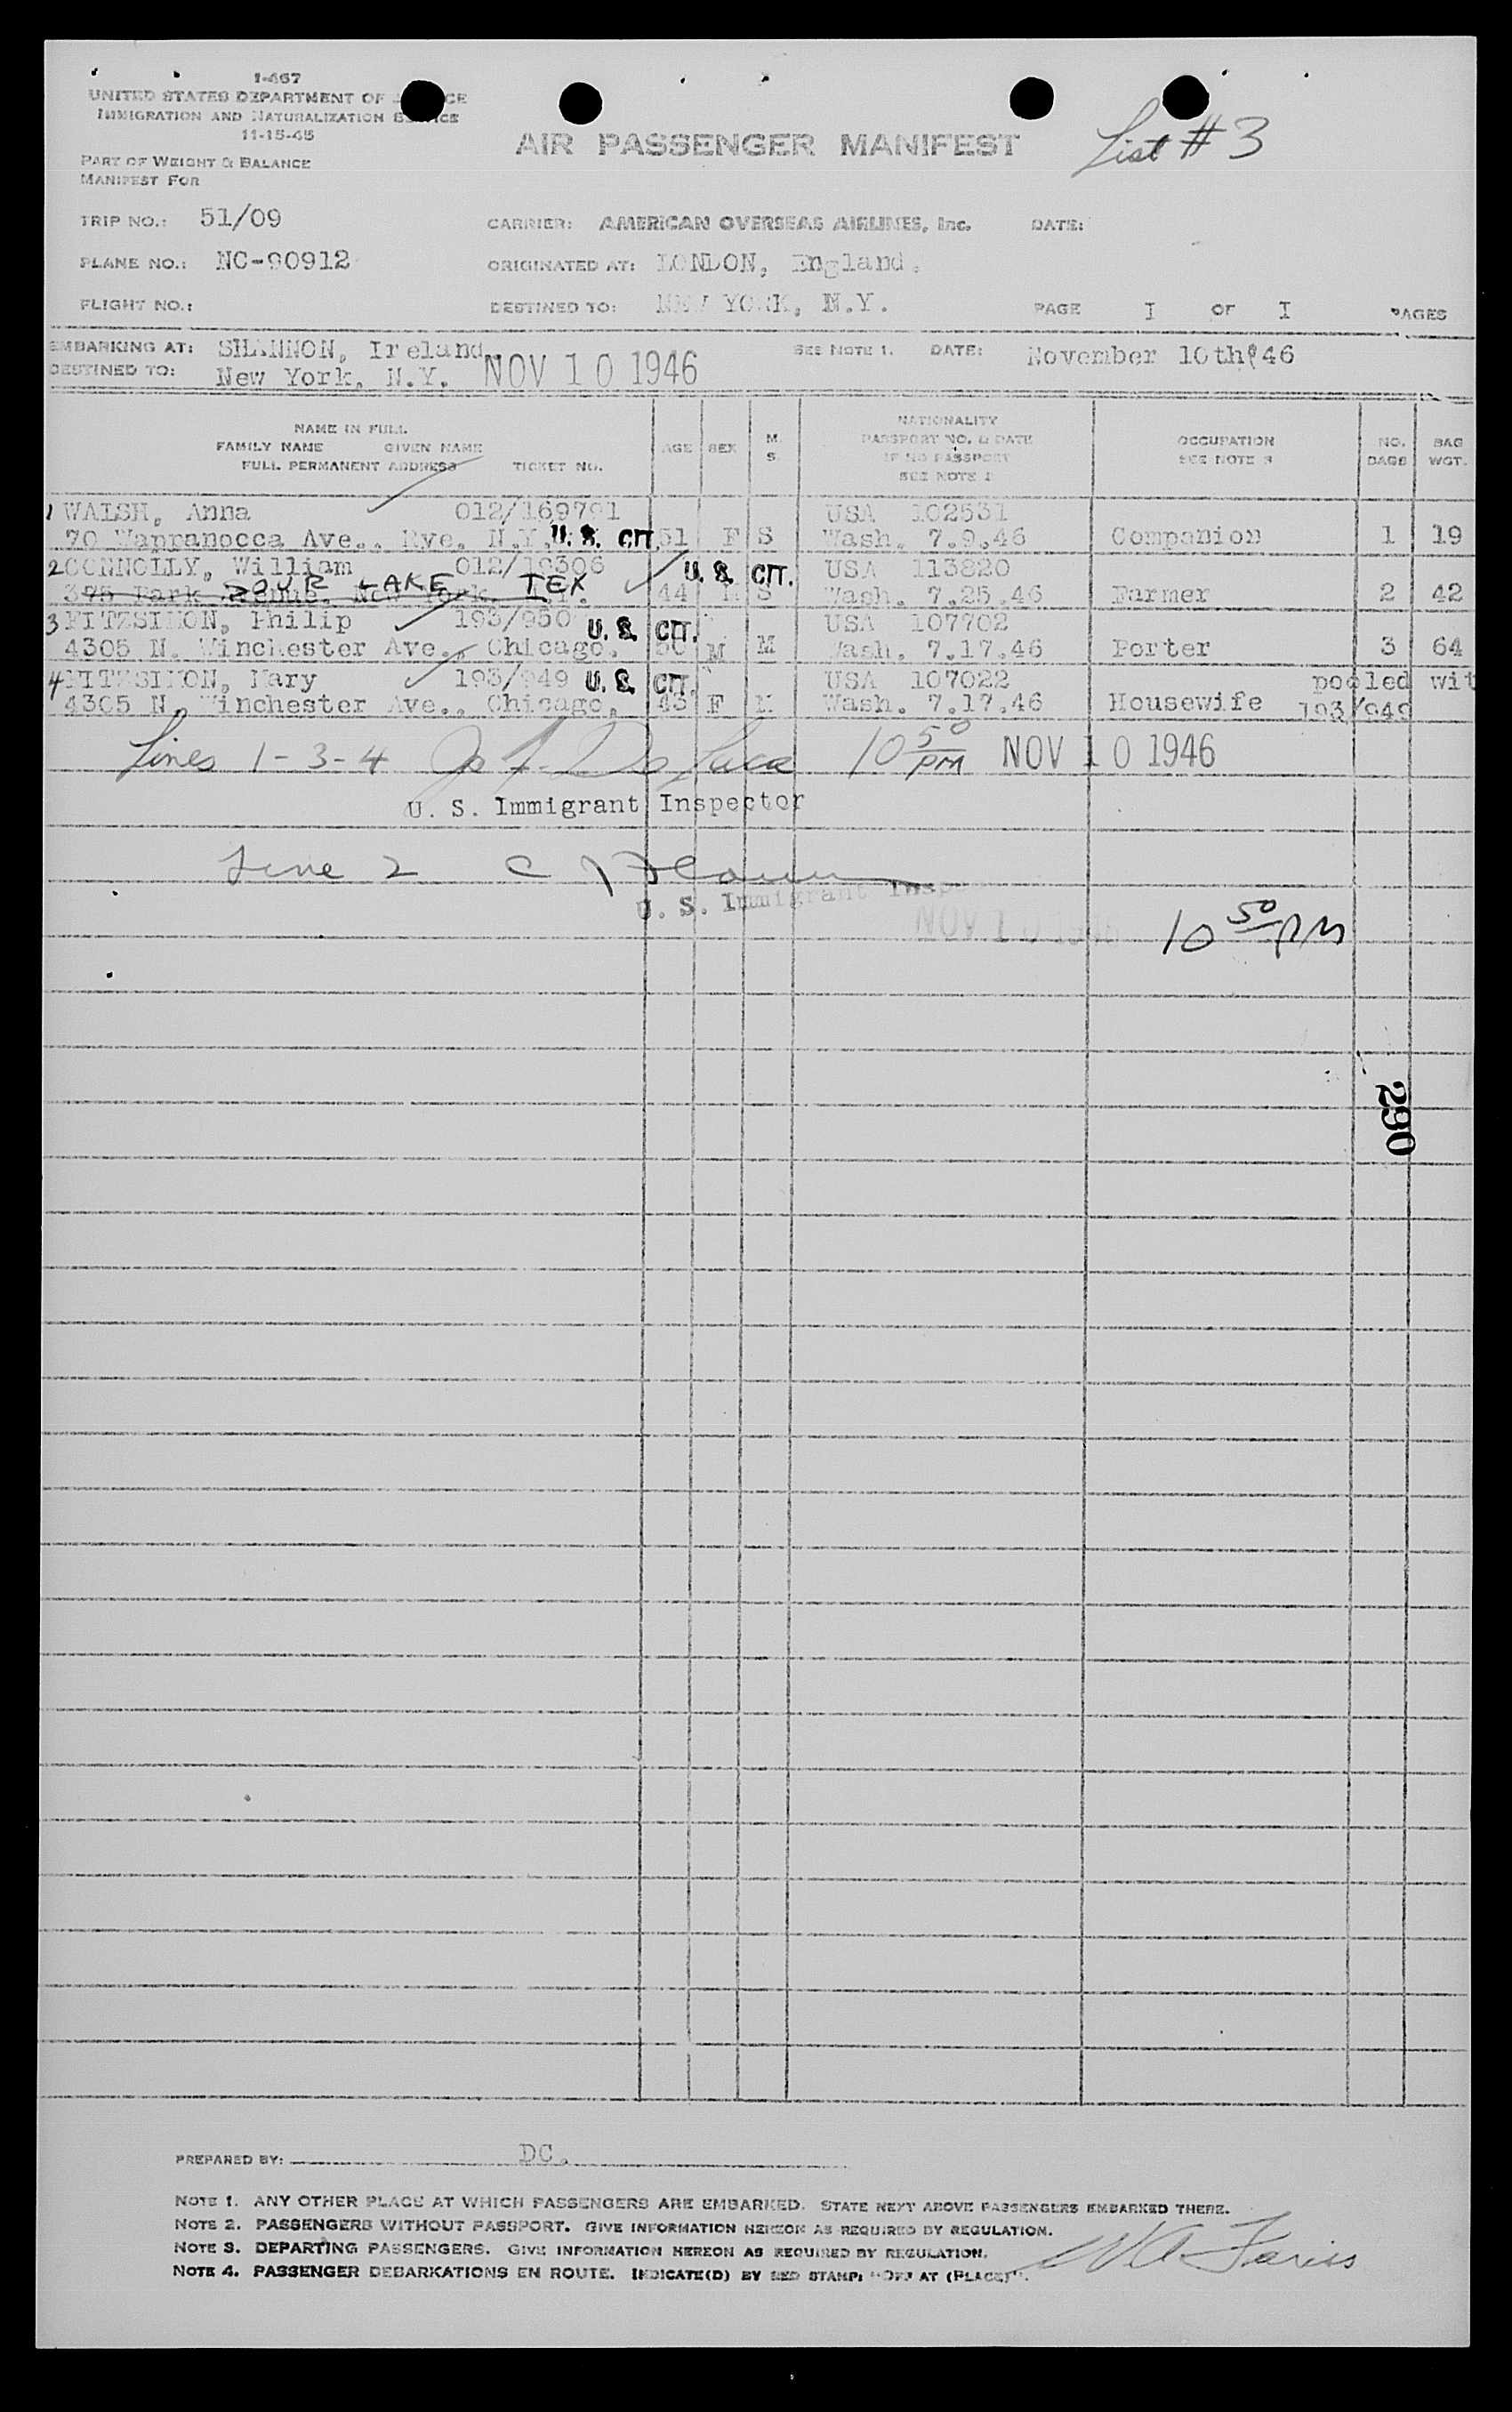 I-467
UNITED STATES DEPARTMENT OF
IMMIGRATION AND NATURALIZATION
11-15-45
AIR PASSENGER MANIFEST
List # 3
PART OF WEIGHT & BALANCE
MANIFEST FOR
TRIP NO.: 51/09 CARRIER: AMERICAN OVERSEAS AIRLINES, Inc. DATE:
PLANE NO.: NC-90912 ORIGINATED AT: LONDON, England.
FLIGHT NO.: DESTINED TO: NEW YORK, N.Y. PAGE I OF I PAGES
EMBARKING AT: SHANNON, Ireland. SEE NOTE 1. DATE: November 10th '46
DESTINED TO: New York, N.Y. NOV 10 1946
NAME IN FULL
FAMILY NAME GIVEN NAME
FULL PERMANENT ADDRESS TICKET NO. AGE SEX M. S. NATIONALITY PASSPORT NO. & DATE IF NO PASSPORT SEE NOTE 2 OCCUPATION SEE NOTE 3 NO. BAGS BAG WGT.
1 WALSH, Anna 012/169791 USA 102531
70 Ave., Rye, N.Y. U. S. CIT. 51 F S Wash. 7.9.46 Companion 1 19
2 CONNOLLY, William 012/19306 U. S. CIT. USA 113820
SOUR LAKE TEX
375 Park Avenue, New York, N.Y. 44 M S Wash. 7.25.46 Farmer 2 42
3 FITZSIMON, Philip 193/950 U. S. CIT. USA 107702
4305 N. Winchester Ave., Chicago. 50 M M Wash. 7.17.46 Porter 3 64
4 FITZSIMON, Mary 193/949 U. S. CIT. USA 107022 pooled wit
4305 N. Winchester Ave., Chicago. 43 F M Wash. 7.17.46 Housewife 193/949
Lines 1-3-4 De Luca 10 50 PM NOV 10 1946
U. S. Immigrant Inspector
Line 2
U. S. Immigrant Insp
NOV 10 1946 10 50 PM
290
PREPARED BY: DC.
NOTE 1. ANY OTHER PLACE AT WHICH PASSENGERS ARE EMBARKED. STATE NEXT ABOVE PASSENGERS EMBARKED THERE.
NOTE 2. PASSENGERS WITHOUT PASSPORT. GIVE INFORMATION HEREON AS REQUIRED BY REGULATION.
NOTE 3. DEPARTING PASSENGERS. GIVE INFORMATION HEREON AS REQUIRED BY REGULATION.
NOTE 4. PASSENGER DEBARKATIONS EN ROUTE. INDICATE(D) BY RED STAMP: "OFF AT (PLACE)".
Fariss